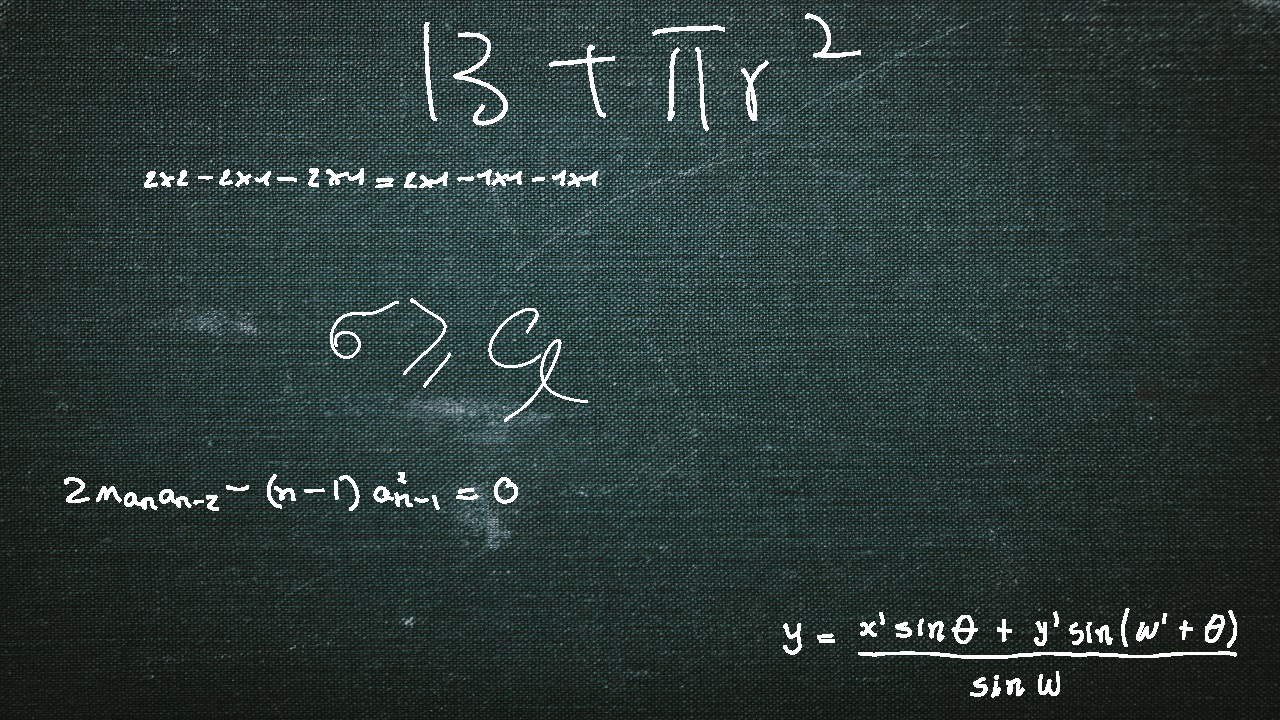 13 + πr²
2×2 − 2×1 − 2×1 = 2×1 − 1×1 − 1×1
σ ⩾ C_l
2na_na_{n−2} − (n−1)a²_{n−1} = 0
y = (x' sin θ + y' sin(w' + θ)) / sin w